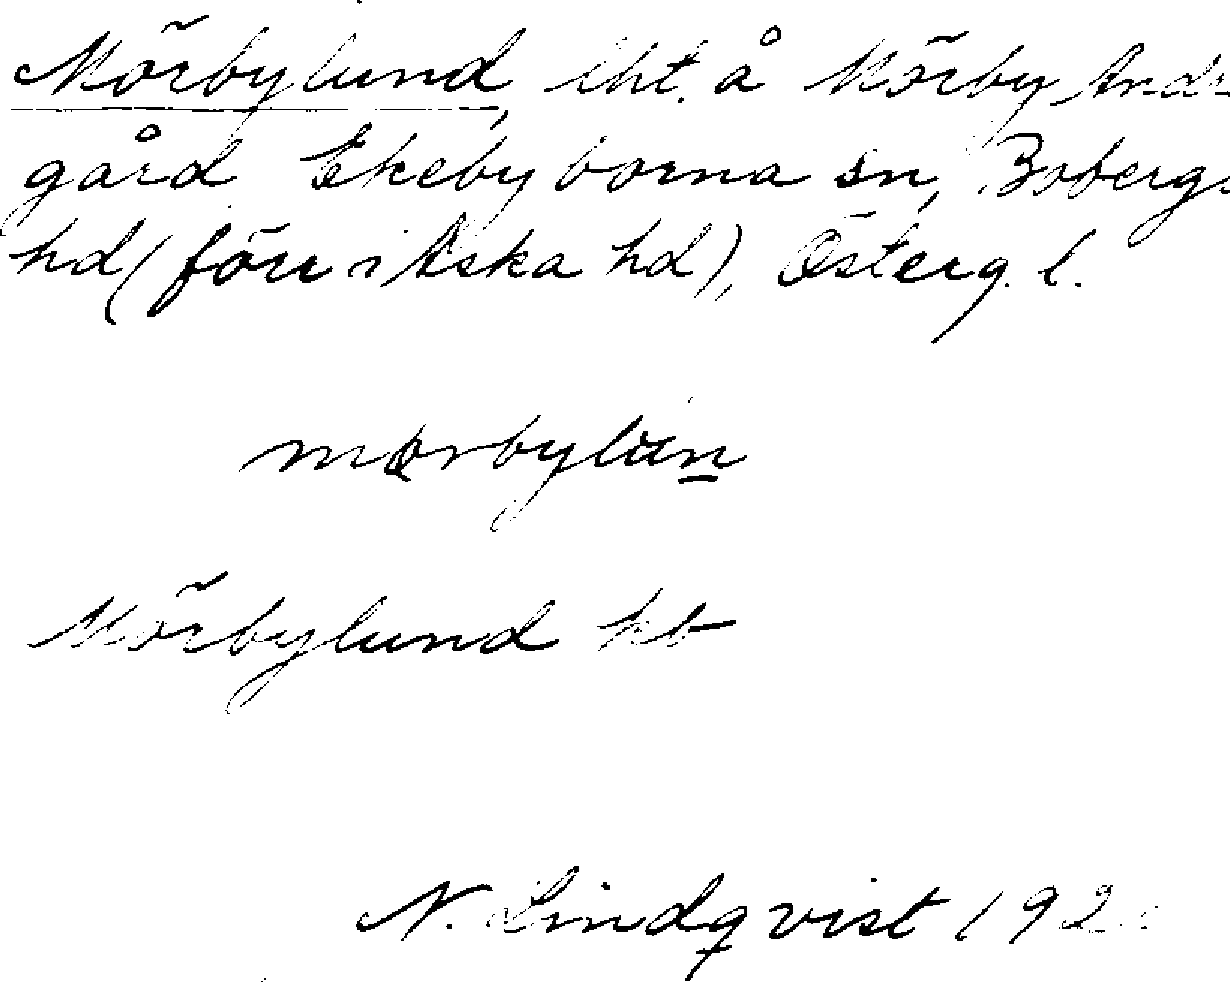 Mörbylund, lht. å Mörby Andr
gård Ekebyborna sn, Bobergs
hd (förr i Aska hd), Österg. l.
mørbylun
Mörbylund kb
N. Lindqvist